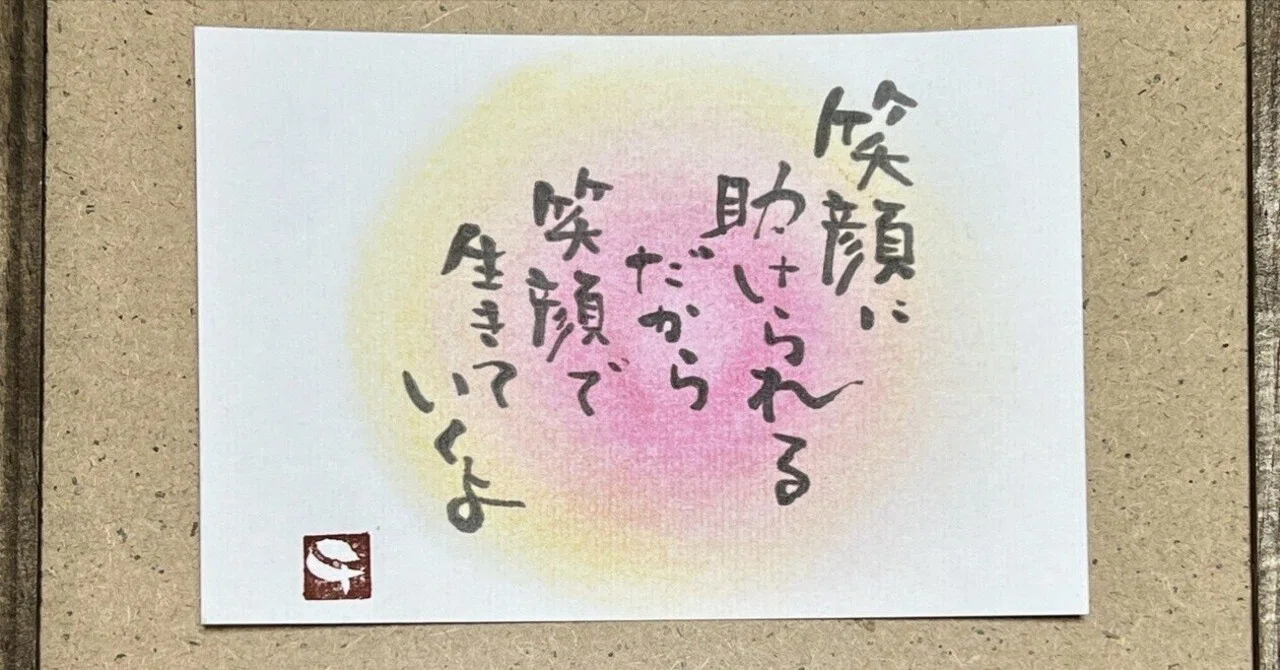 笑顔に
助けられる
だから
笑顔で
生きて
いくよ